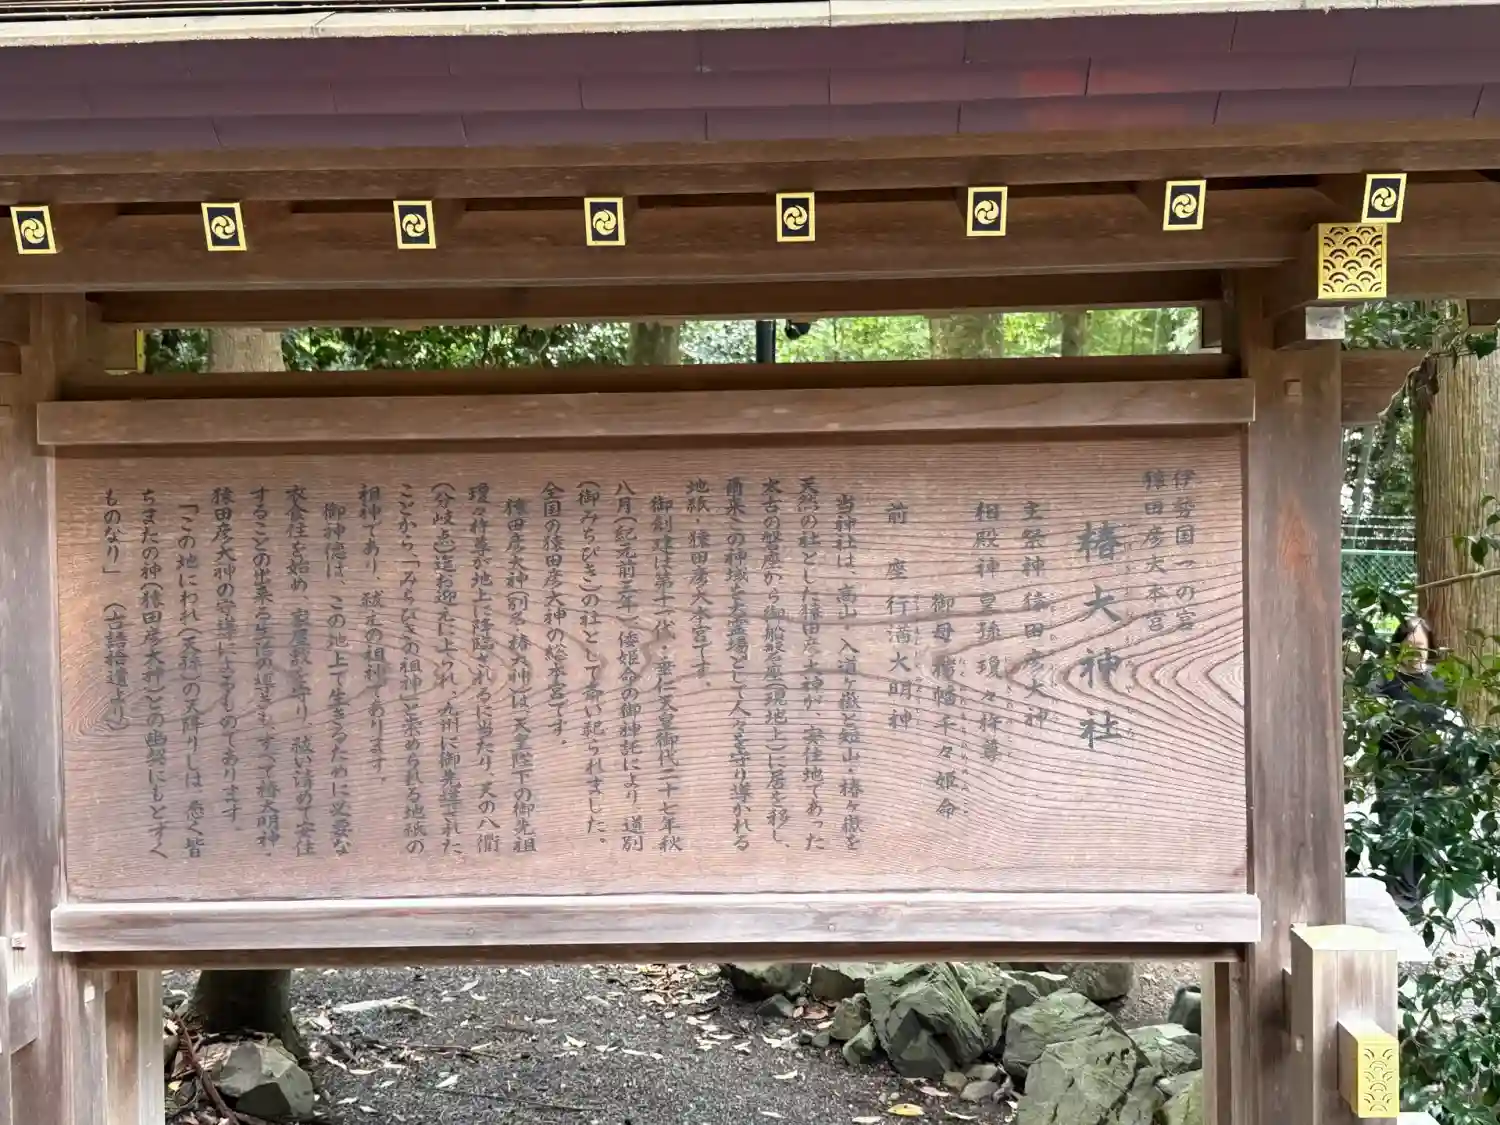 伊勢国一の宮
猿田彦大本宮
椿大神社
主祭神 猿田彦大神
相殿神 皇孫瓊々杵尊
御母 栲幡千々姫命
前座 行満大明神
当神社は、高山、入道ヶ嶽と短山・椿ヶ嶽を
天然の社とした猿田彦大神が、安住地であった
太古の磐座から御船磐座(現地上)に居を移し、
爾来この神域を大霊場として人々を守り導かれる
地祇・猿田彦大本宮です。
御創建は第十一代・垂仁天皇御代二十七年秋
八月(紀元前三年)、倭姫命の御神託により、道別
(御みちびき)の社として斎い祀られました。
全国の猿田彦大神の総本宮です。
猿田彦大神(別名・椿大神)は、天皇陛下の御先祖
瓊々杵尊が地上に降臨されるに当たり、天の八衢
(分岐点)迄お迎えに上られ、九州に御先導された
ことから、「みちびきの祖神」と崇められる地祇の
祖神であり、祓元の祖神であります。
御神徳は、この地上で生きるために必要な
衣食住を始め、家屋敷を守り、祓い清めて安住
することの出来る生活の道までも、すべて椿大明神・
猿田彦大神の守導によるものであります。
「この地にわれ(天孫)の天降りしは、悉く皆
ちまたの神(猿田彦大神)との幽契にもとずく
ものなり」 (古語拾遺より)